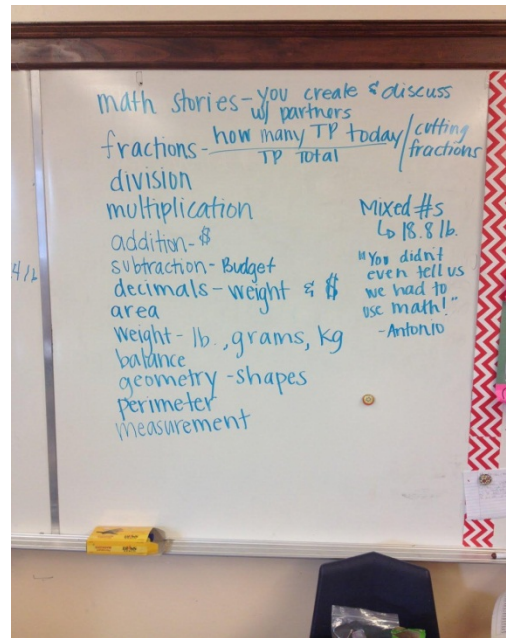 math stories - you create & discuss
w/ partners
fractions - how many TP today / cutting
TP Total fractions
division
multiplication
addition - $
subtraction - Budget
decimals - weight & $
area
weight - lb., grams, kg
balance
geometry - shapes
perimeter
measurement
Mixed #s
↳ 18.8 lb.
"You didn't
even tell us
we had to
use math!"
- Antonio